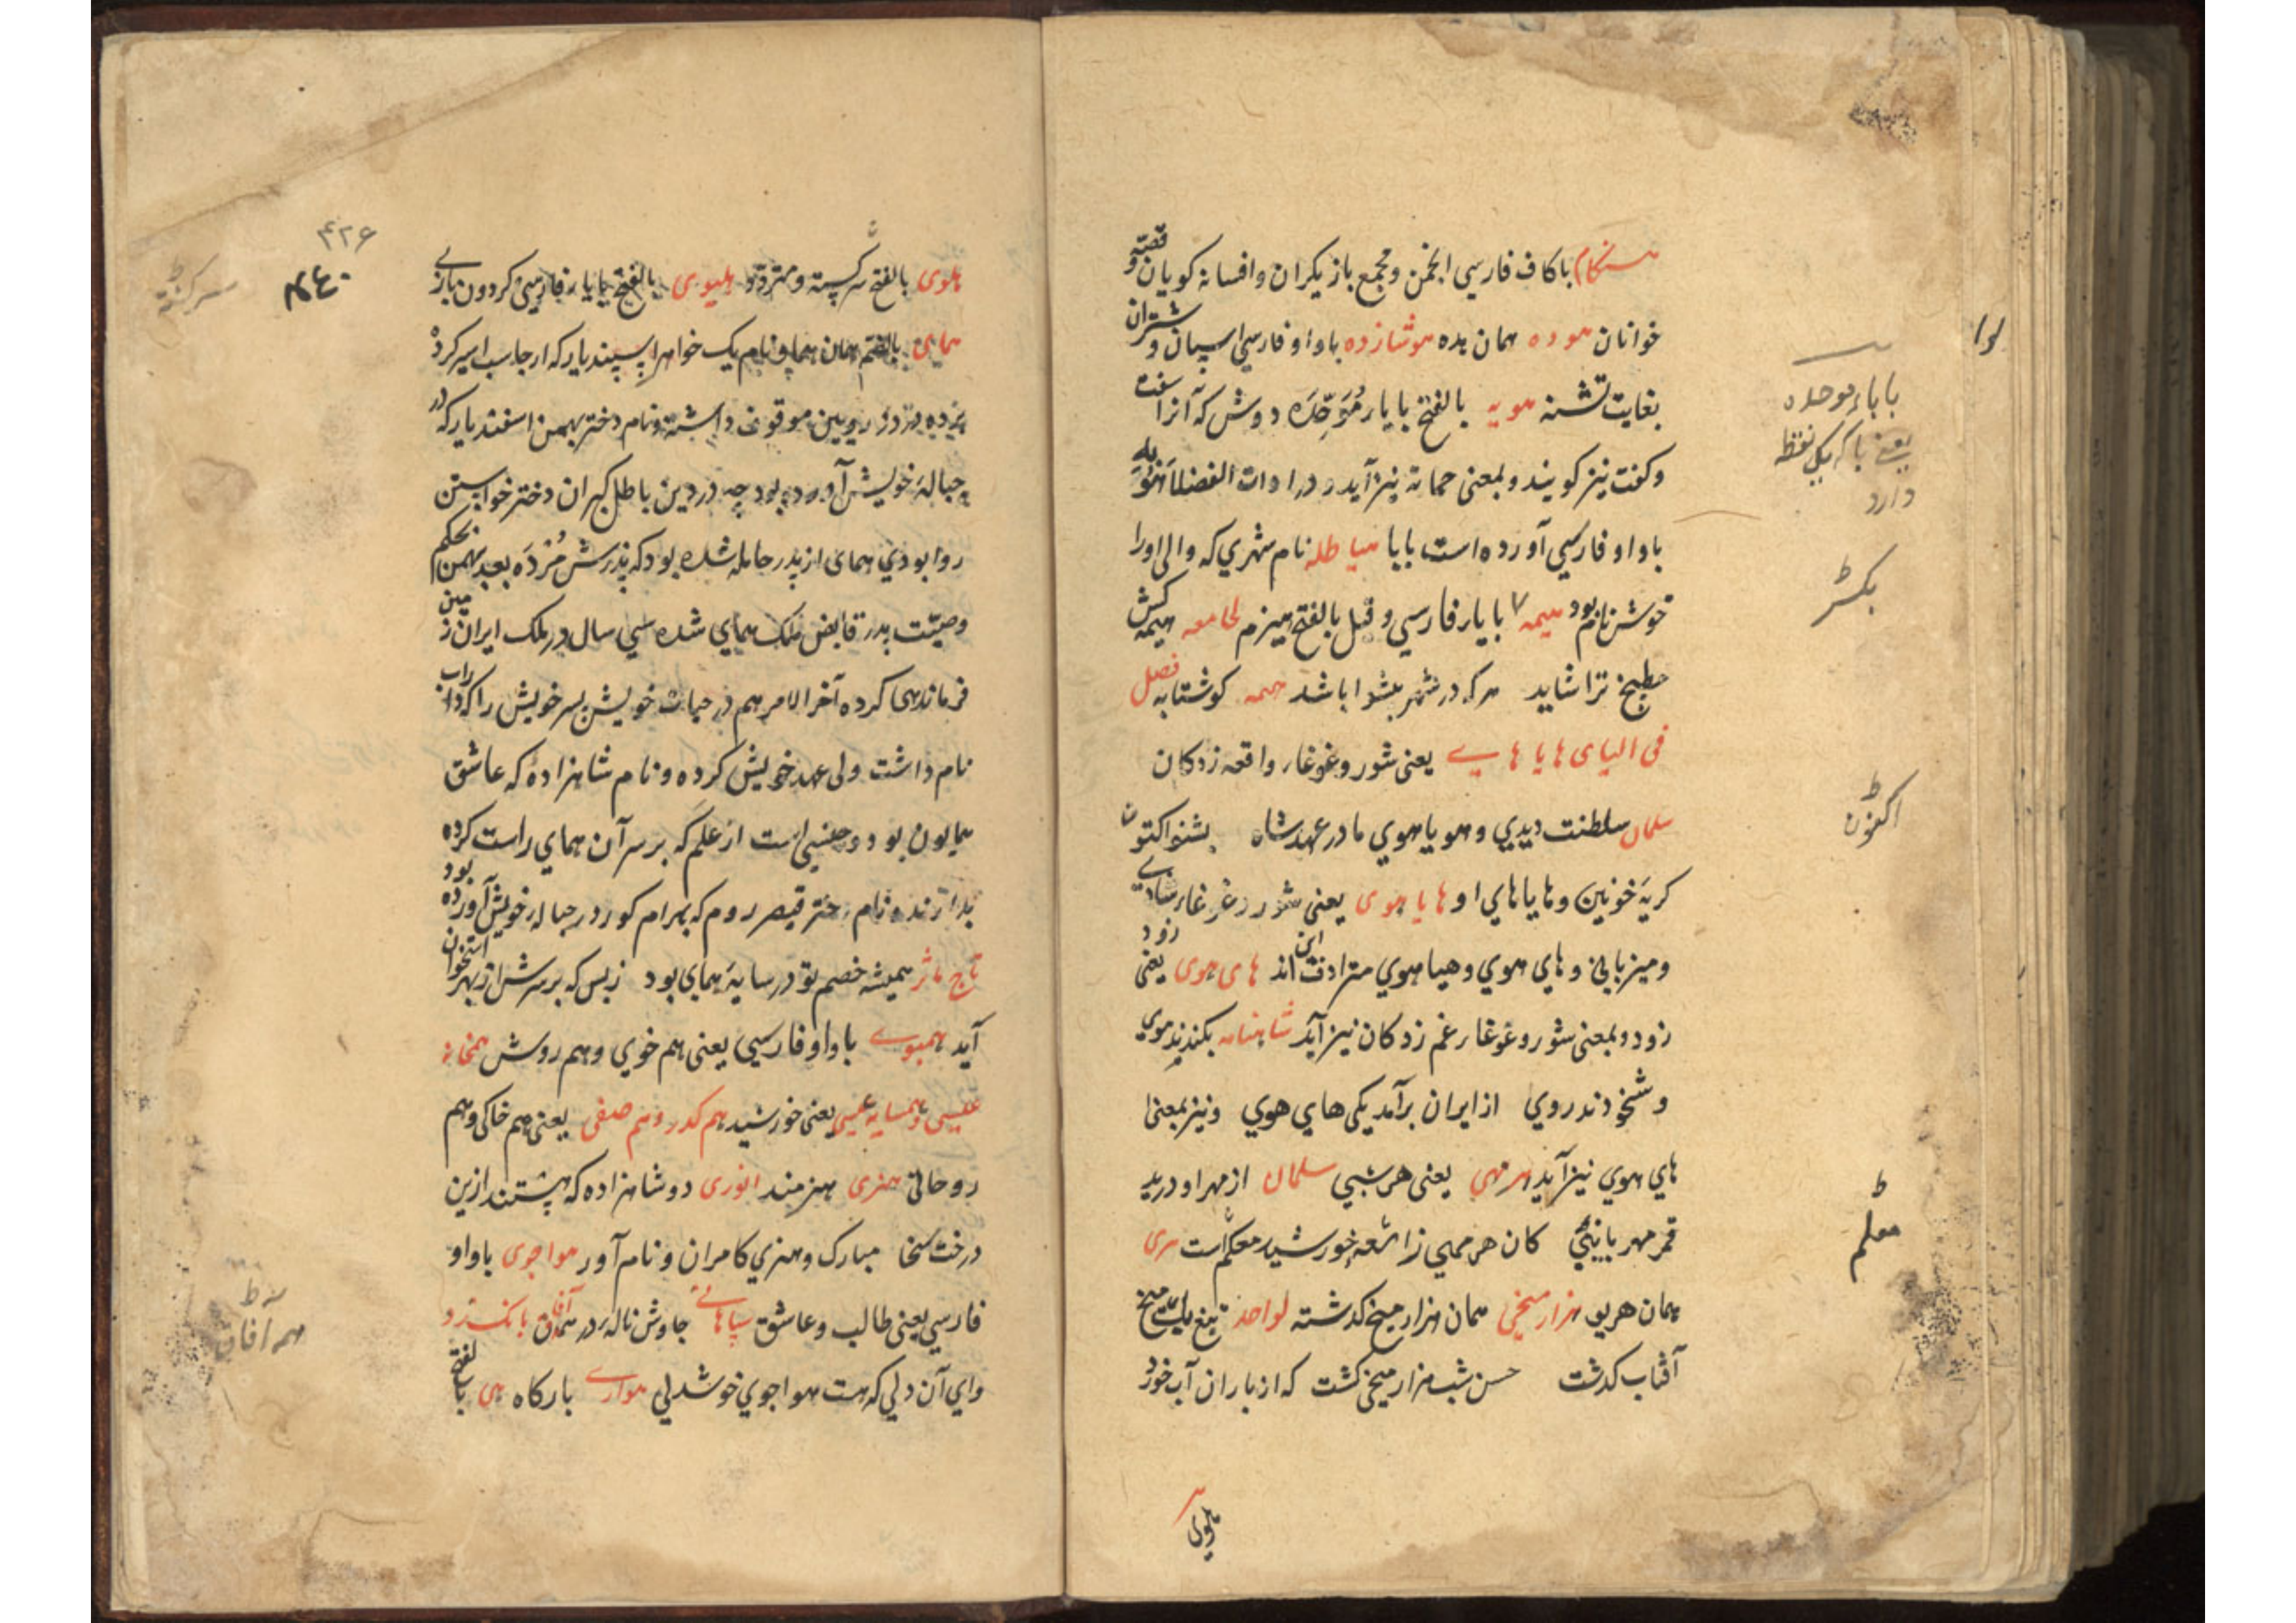 هنگام باکاف فارسي انجمن و مجمع بازیکران و افسانه کویان و قصّه
خوانان هوده همان بده هوشازده باواو فارسي اسپان و شتران
بغایت تشنه هوبه بالفتح بابار مُوَحِّدَه دوش که آنرا سفت
وکفت نیز کویند و بمعنی حماته نیز آید و در ادات الفضلا
باواو فارسي آورده است بابا هیاطله نام شهري که والی اورا
خوشنام بود هیمه بایار فارسي و قبل بالفتح هیزم لجامعه هیمه کش
مطبخ ترا شاید هرکه در شهر پیشوا باشد کوشتابه فصل
فی الیای هایاهاے یعنی شور و غوغار واقعه زدکان
سلمان سلطنت دیدي و هویاهوي ما در عهد شاه بشنو اکنون
کریهٔ خونین و هایاهاي او هایاهوی یعنی شور و غوغار شادے
و میزبانی و هاي هوي و هیاهوي مترادف این اند های هوی یعنی زود
زود و بمعنی شور و غوغار غم زدکان نیز آید شاهنامه بکندند موي
و شخودند روي از ایران برآمد یکی هاي هوي و نیز بمعنی
هاي هوي نیز آید هر مهی یعنی هر شبي سلمان از مهر او درید
قمر مهر بابنی کان هر مهي ز اشعهٔ خورشید معکم است هری
همان هریو هزار میخی همان هزار میخ کذشته لواحد تیغ
آفتاب کذشت حسن شب هزار میخی کشت که از باران آب خورد
هلوی
لوا
باباء موحده
یعنی باکه یک نقطه
دارد
اکنون
معلم
۴۲۶
هلوی بالفتح سرکسته و متردّد هلیوی بالفتح بایار فارسی کردون بازے
همای بالضّم همان هما و نام یک خواهر اسپندیار که ارجاسب اسیر کرده
برده در دژ رویین موقوف داشته و نام دختر بهمن اسفندیار که در
حبالهٔ خویش آورده بود چه در دین باطل کبران دختر خواستن
روا بودي همای از پدر حامله شده بود که پدرش مُرْدَه بعد بهمن بحکم
وصیّت پدر قابض ملک همای شده سي سال در ملک ایران زمین
فرماندهی کرده آخر الامر هم در حیات خویش پسر خویش را که داراب
نام داشت ولی عهد خویش کرده و نام شاهزادهٔ که عاشق
همایون بود و جنسي است از علم که بر سر آن همای راست کرده
بدارند و نام دختر قیصر روم که بهرام کور در حباله خویش آورده بود
تاج مآثر همیشه خصم تو در سایهٔ همای بود زبس که بر سرش از بهر استخوان
آید همبوے باواو فارسي یعنی هم خوي و هم روش همخانه
عیسی و همسایه عیسی یعنی خورشید هم کدر و هم صفی یعنی هم خاکی و هم
روحانی هنری هنرمند انوری دو شاهزاده که هستند ازین
درخت سخا مبارک و هنري کامران و نام آور هواجوی باواو
فارسي یعنی طالب و عاشق سپاهانے جاوش ناله در همه آفاق بانک زد
واي آن دلي که هست هواجوي خوشدلي هوارے بارکاه هی بالفتح
همه آفاق